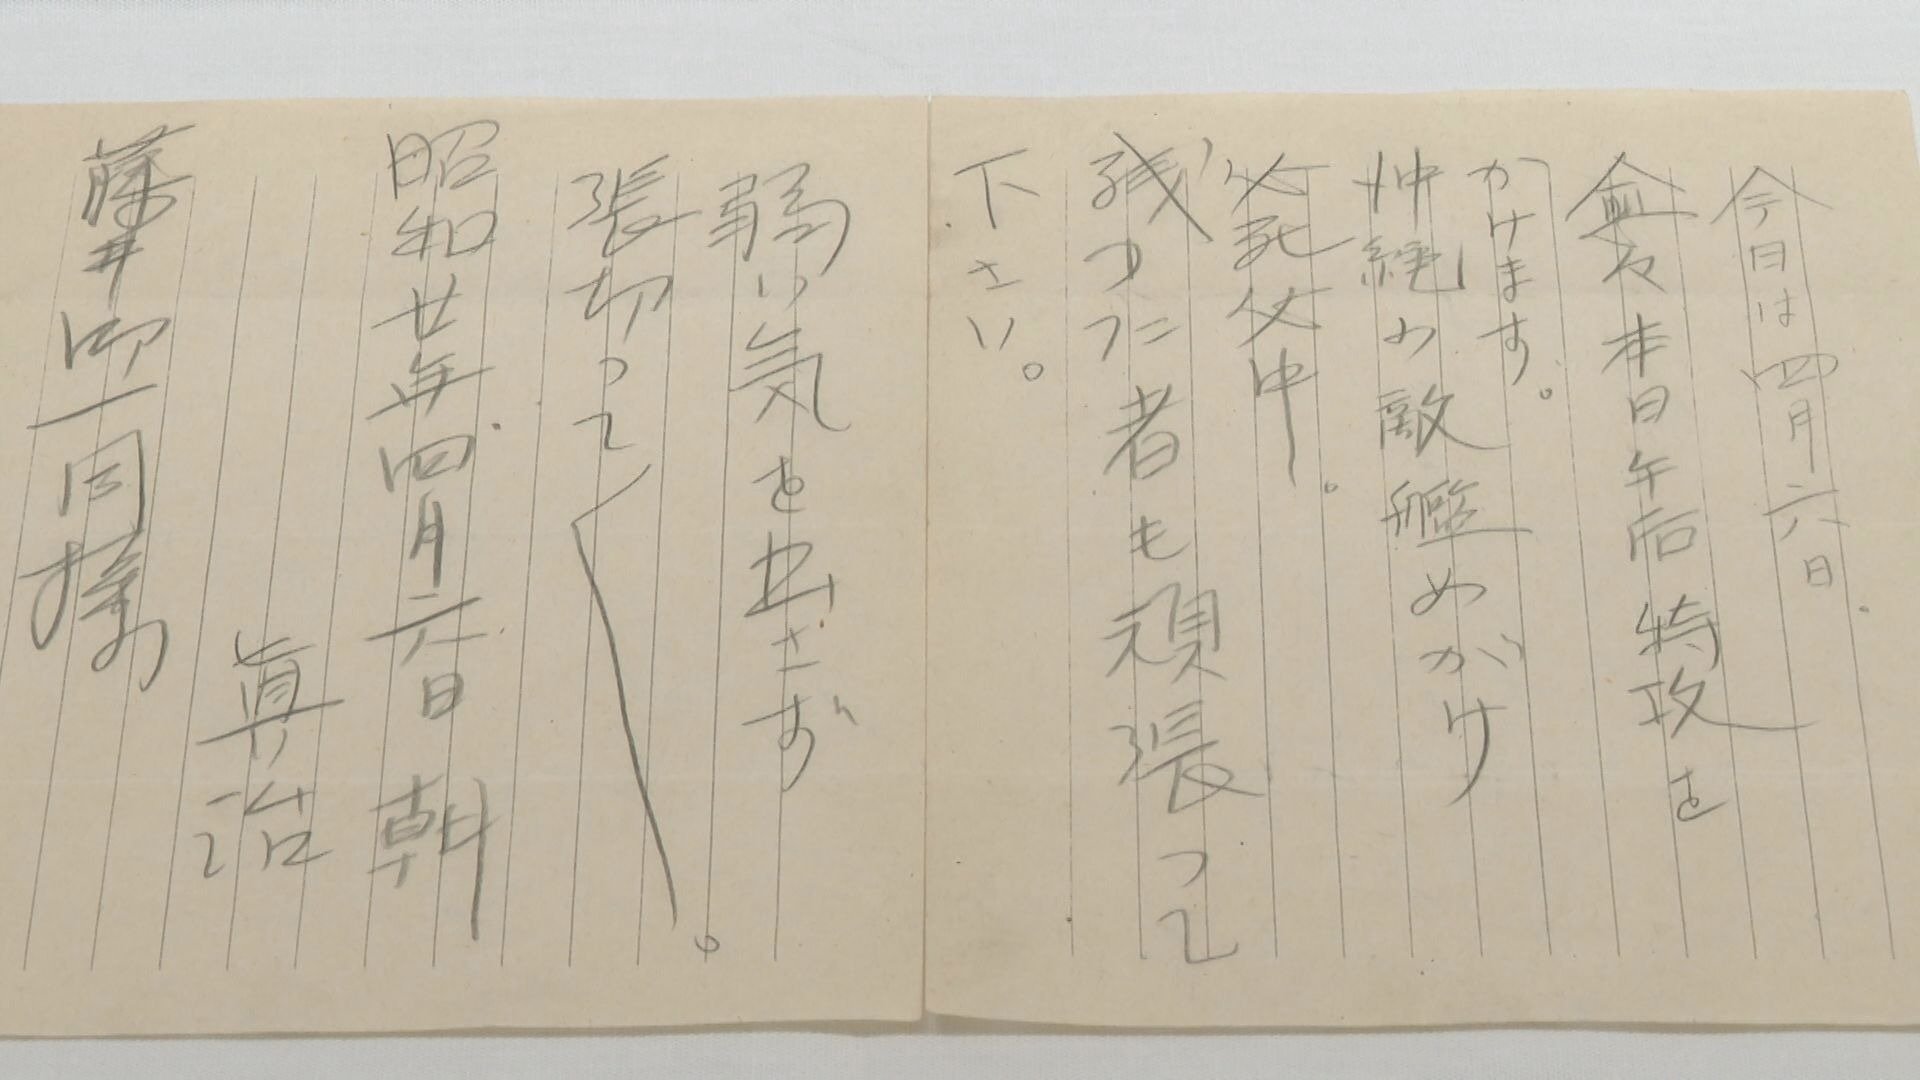 今日は四月六日。
愈々本日午后特攻を
かけます。
沖縄の敵艦めがけ
必死必中。
残った者も頑張って
下さい。
弱い気を出さず
張切って〱。
昭和廿年四月六日朝
眞治
藤井御一同様